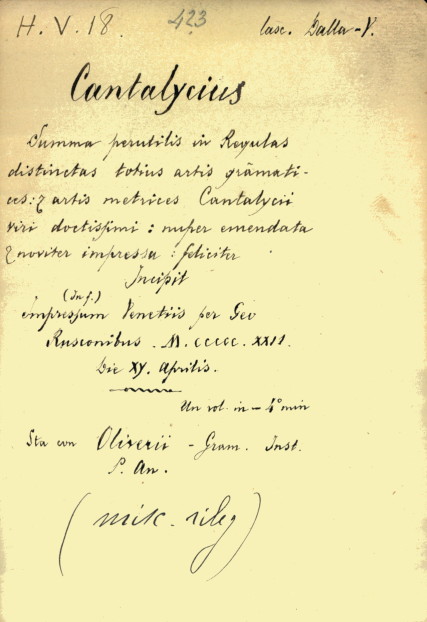 H. V. 18. 423 casc. Galla-V.
Cantalycius
Summa perutilis in Regulas
distinctas totius artis grāmati-
ces: ⁊ artis metrices Cantalycii
viri doctissimi: nuper emendata
⁊ noviter impressa: feliciter
Incipit
(In f.)
Impressum Venetiis per Geo
Rusconibus. M. CCCCC. XXII.
Die XV. Aprilis.
Un vol. in - 4° min
Sta con Oliverii - Gram. Inst.
S. An.
(misc. rileg)